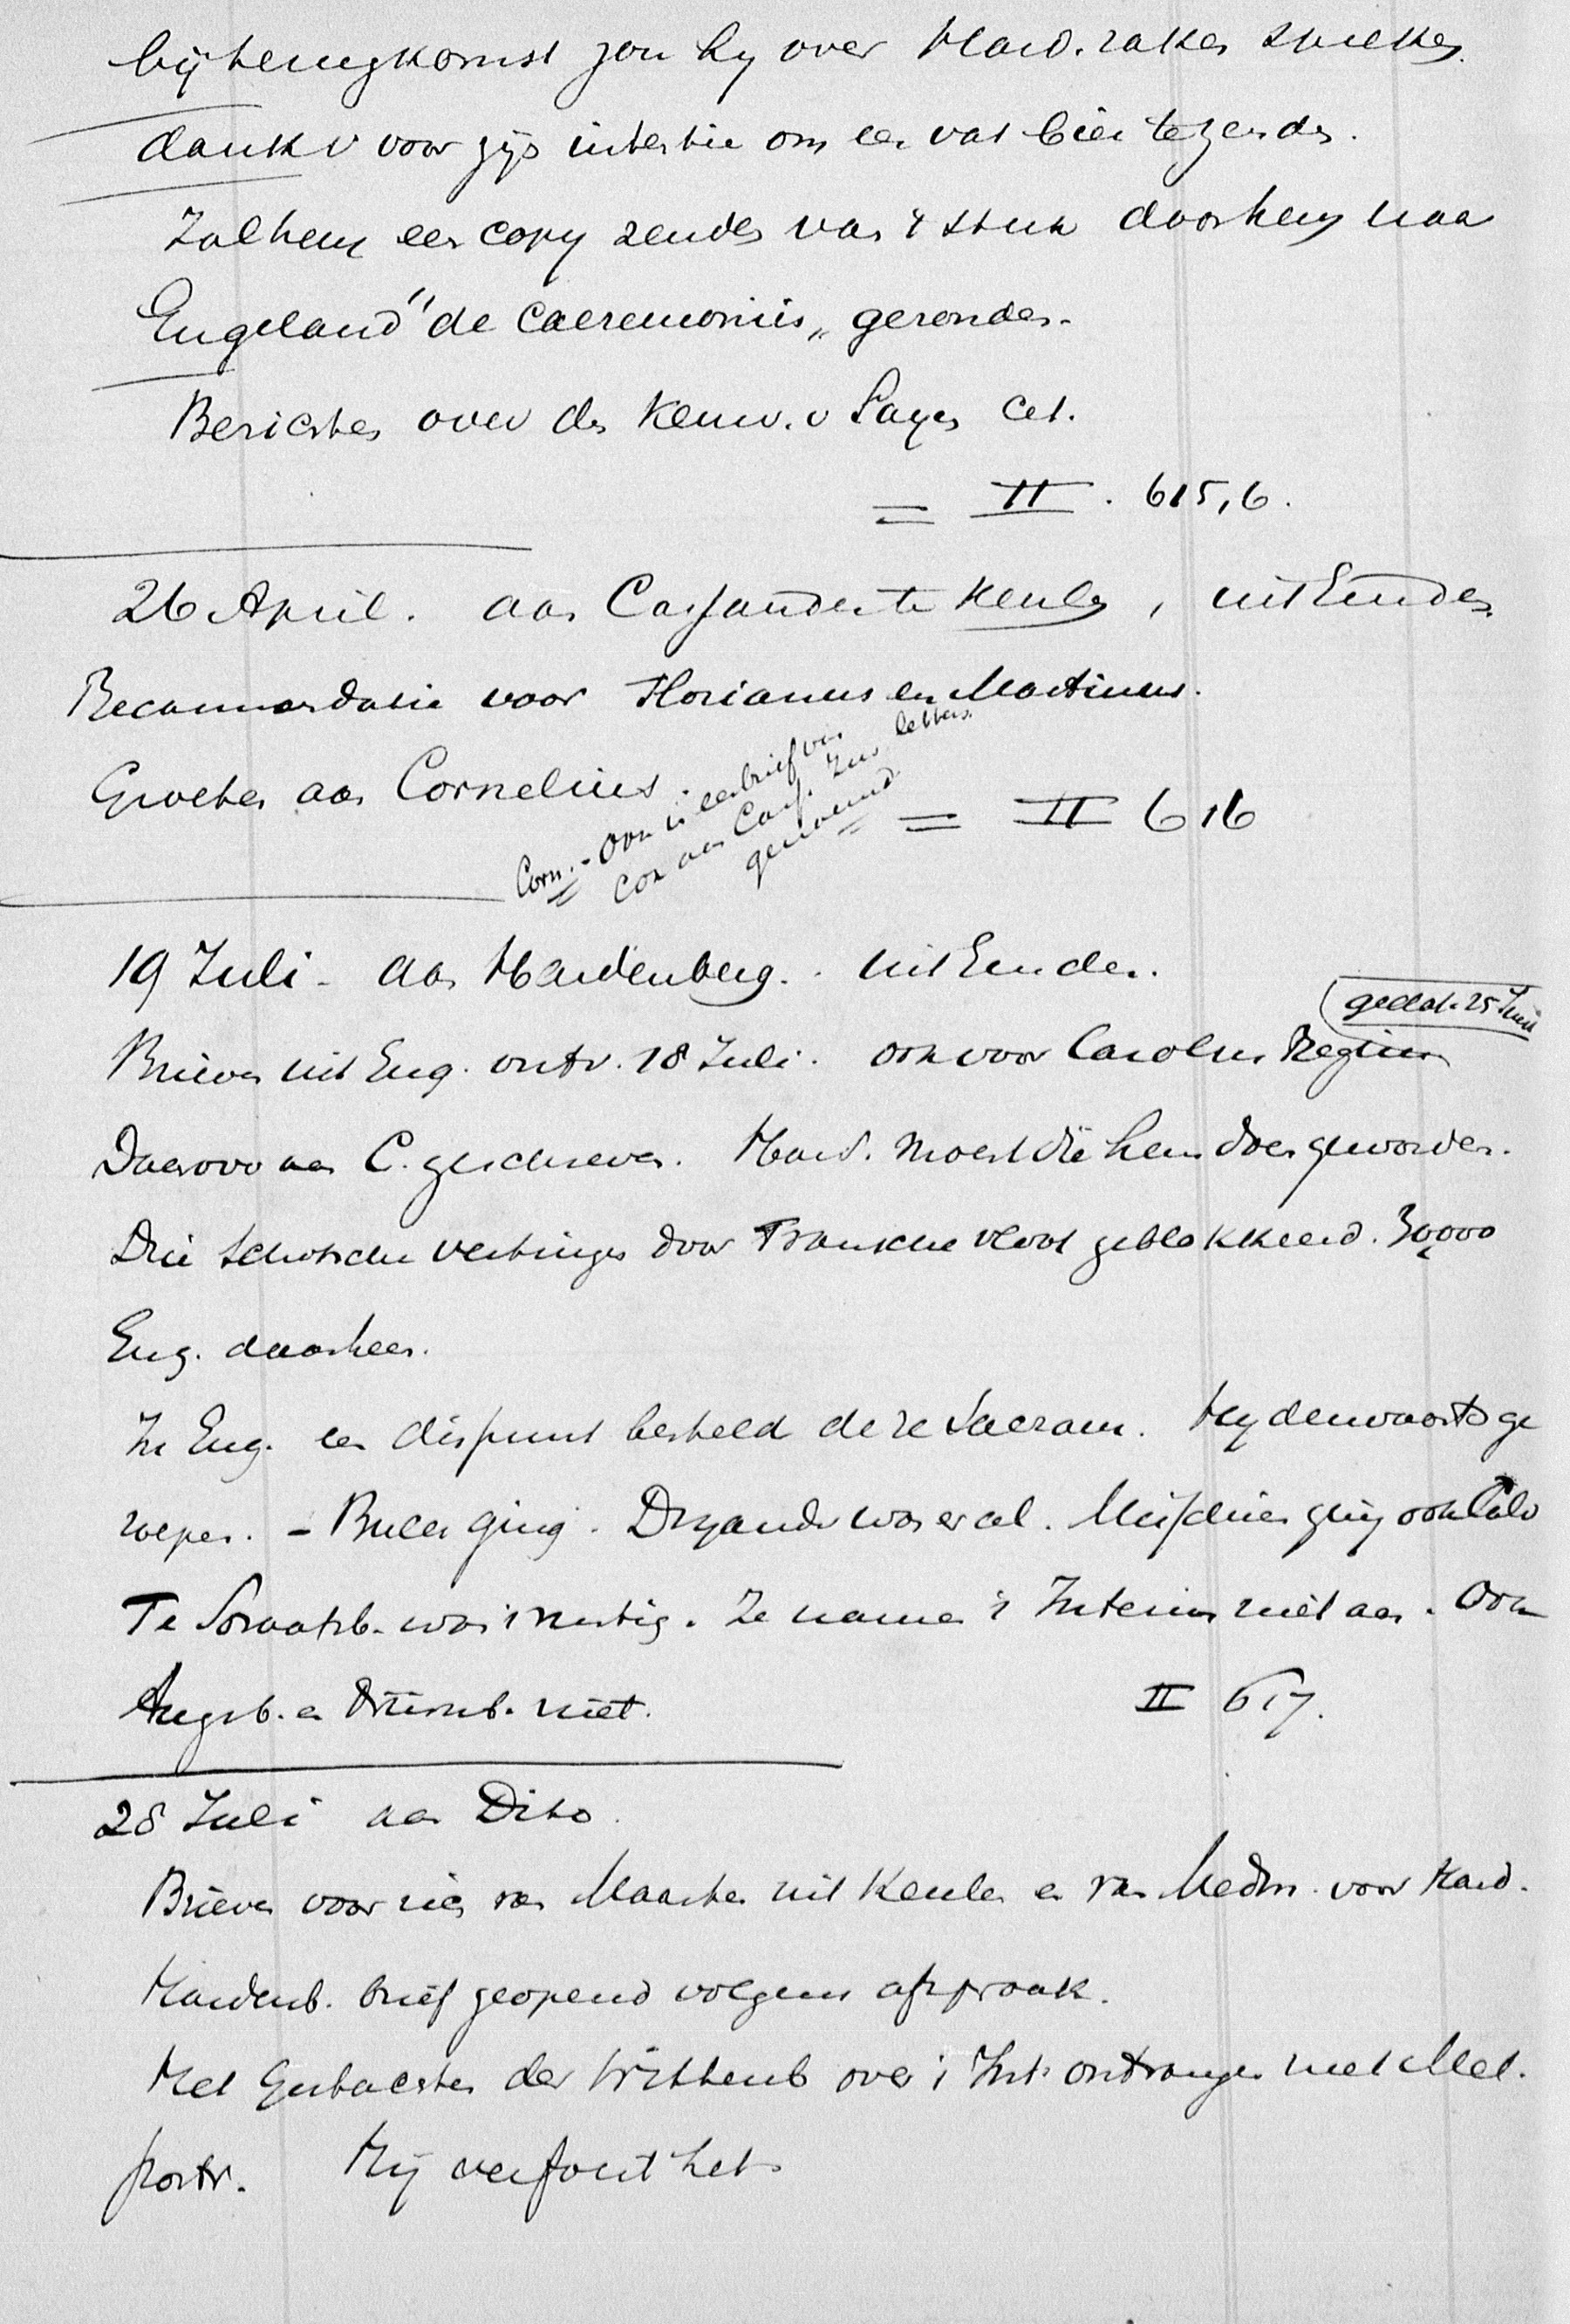 bij terugkomst zou hy over Hard. zaken spreken.
dankt voor zijn intentie om een vat bier te zenden.
Zal hem een copy zenden van 't stuk door hem naar
Engeland "de Caeremoniis" gezonden.
Berichten over den Keurv. v Saxen cet.
= II. 615,6.
26 April. aan Cassander te Keulen, uit Emden
Recommandatie voor Florianus en Martinus.
Groeten aan Cornelius.
Corn. - Ook is een brief van
Cor aan Cass. Zur letters.
genoemd
= II 616
19 Juli - aan Hardenberg. uit Emden.
gedat. 25 Juni
Brieven uit Eng. ontv. 18 Juli. ook voor Carolus Regius
Daarover aan C. geschreven. Hard. moest die hem doen geworden.
Drie Schotsche vestingen door Fransche vloot geblokkeerd. 30,000
Eng. daarheen.
In Eng. een dispuut besteld de re Sacram. Hy derwaarts ge
roepen. - Bucer ging. Dryander was er al. Musculus ging ook Calv
Te Straatsb. was 't rustig. Ze namen 't Interim niet aan. Ook
Augsb. en niet.
II 617.
28 Juli aan Dito.
Brieven voor hier van Maarten uit Keulen en van Medm. voor Hard.
Hardenb. brief geopend volgens afspraak.
Het Gutachten der Wittenb over 't Int. ontvangen met Mel.
portr. Hij verfoeit het.